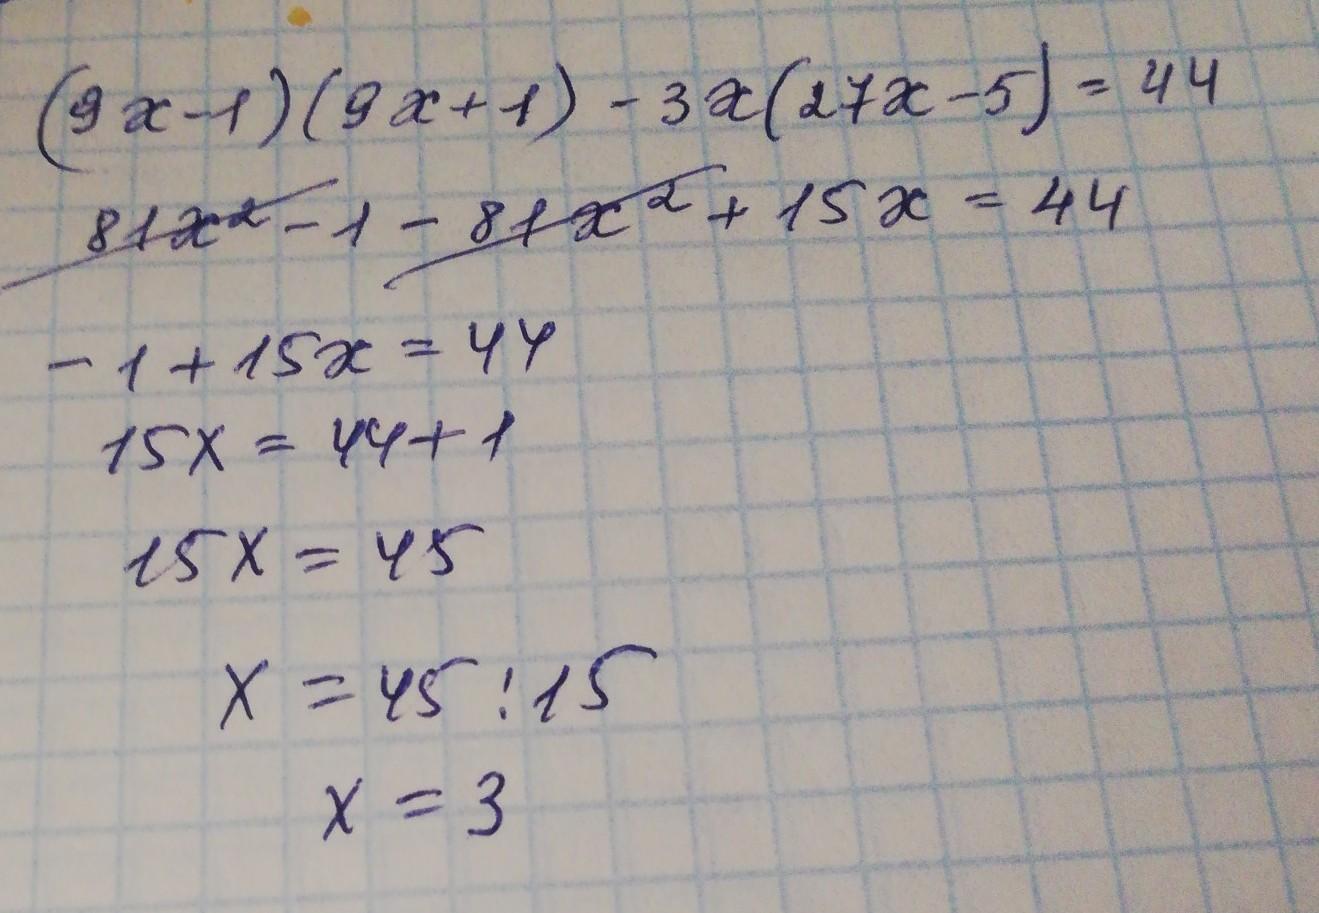 (9x-1)(9x+1)-3x(27x-5)=44
81x²-1-81x²+15x=44
-1+15x=44
15x=44+1
15x=45
x=45:15
x=3